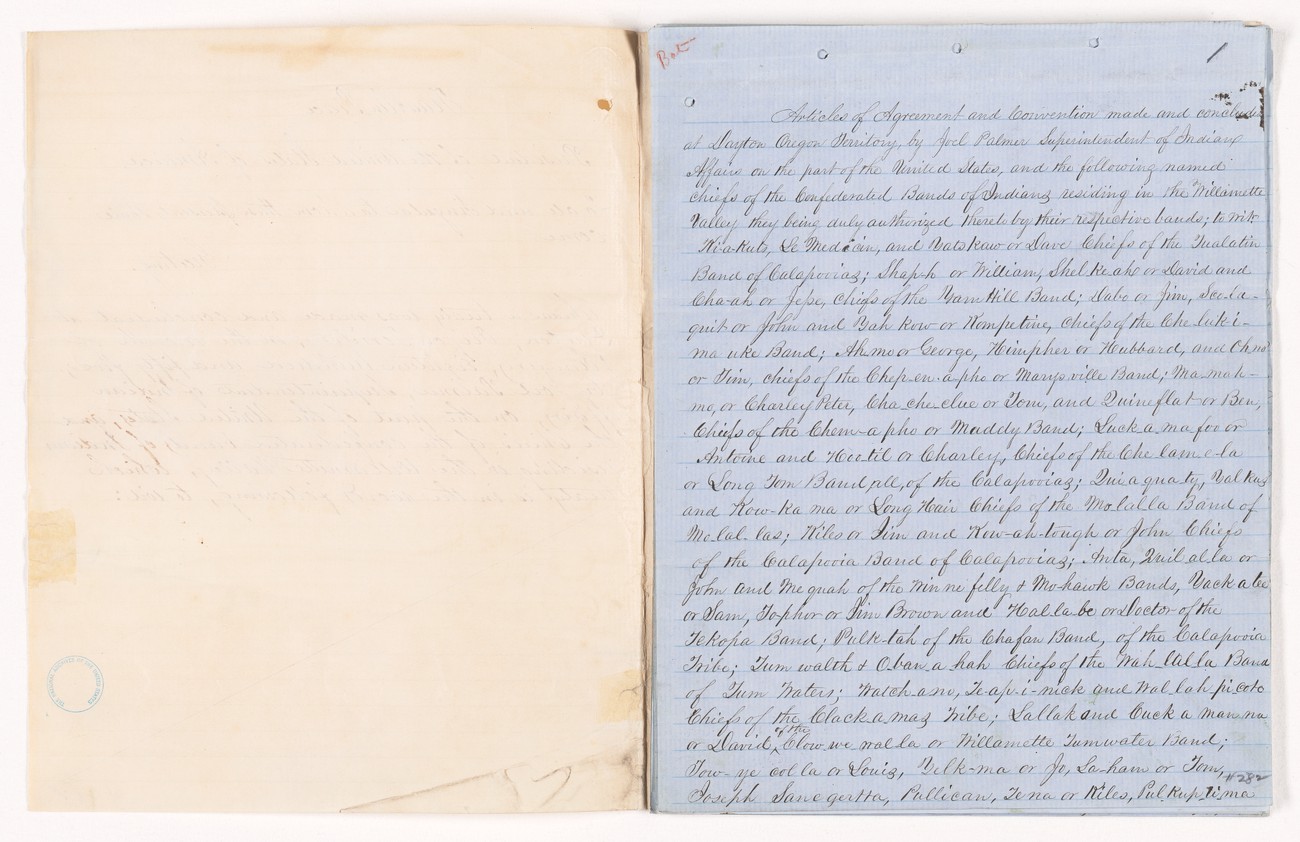 Bot
1
Articles of Agreement and Convention made and concluded
at Dayton Oregon Territory, by Joel Palmer Superintendent of Indian
Affairs on the part of the United States, and the following named
chiefs of the Confederated Bands of Indians residing in the Willamette
Valley they being duly authorized thereto by their respective bands; to wit
Ki-a-Kuts, Le Medecin, and Yats kaw or Dave Chiefs of the Tualatin
Band of Calapooias; Shap-h or William, Shel ke ah or David and
Cha-ah or Jesse, chiefs of the Yam Hill Band; Dabo or Jim, Sco-la-
quit or John and Yah kow or Kompetine, Chiefs of the Che-luk-i-
ma uke Band; Ah mo or George, Himpher or Hubbard, and Oh no
or Tim, chiefs of the Chep-en-a-pho or Marysville Band; Ma mah-
mo, or Charley Peter, Cha-che-clue or Tom, and Quineflat or Ben,
Chiefs of the Chem-a pho or Maddy Band; Luck a ma foo or
Antoine and Hoo til or Charley, Chiefs of the Che lam e-la
or Long Tom Band, all, of the Calapooias; Quiaquaty, Yalkus
and Kow-ka ma or Long Hair Chiefs of the Mo lal la Band of
Mo-lal-las; Kiles or Jim and Kow-ah-tough or John Chiefs
of the Calapooia Band of Calapooias; Anta, Quil al la or
John and Me quah of the Win ne felly & Mo-hawk Bands, Yack a tee
or Sam, To-phor or Jim Brown and Hal la be or Doctor of the
Tekopa Band; Pulk-tah of the Chafan Band, of the Calapooia
Tribe; Tum walth & O-ban a hah Chiefs of the Wah lal la Band
of Tum Waters; Watch-a-no, Te-ap-i-nick and Wal lah pi coto
Chiefs of the Clack a mas Tribe; Lallak and Cuck a man na
or David, of the Clow we wal la or Willamette Tumwater Band;
Tow-ye col la or Louis, Yelk-ma or Jo, La-ham or Tom,
Joseph Sanegertta, Pullican, Te na or Kiles, Pul Kup ti ma
#282